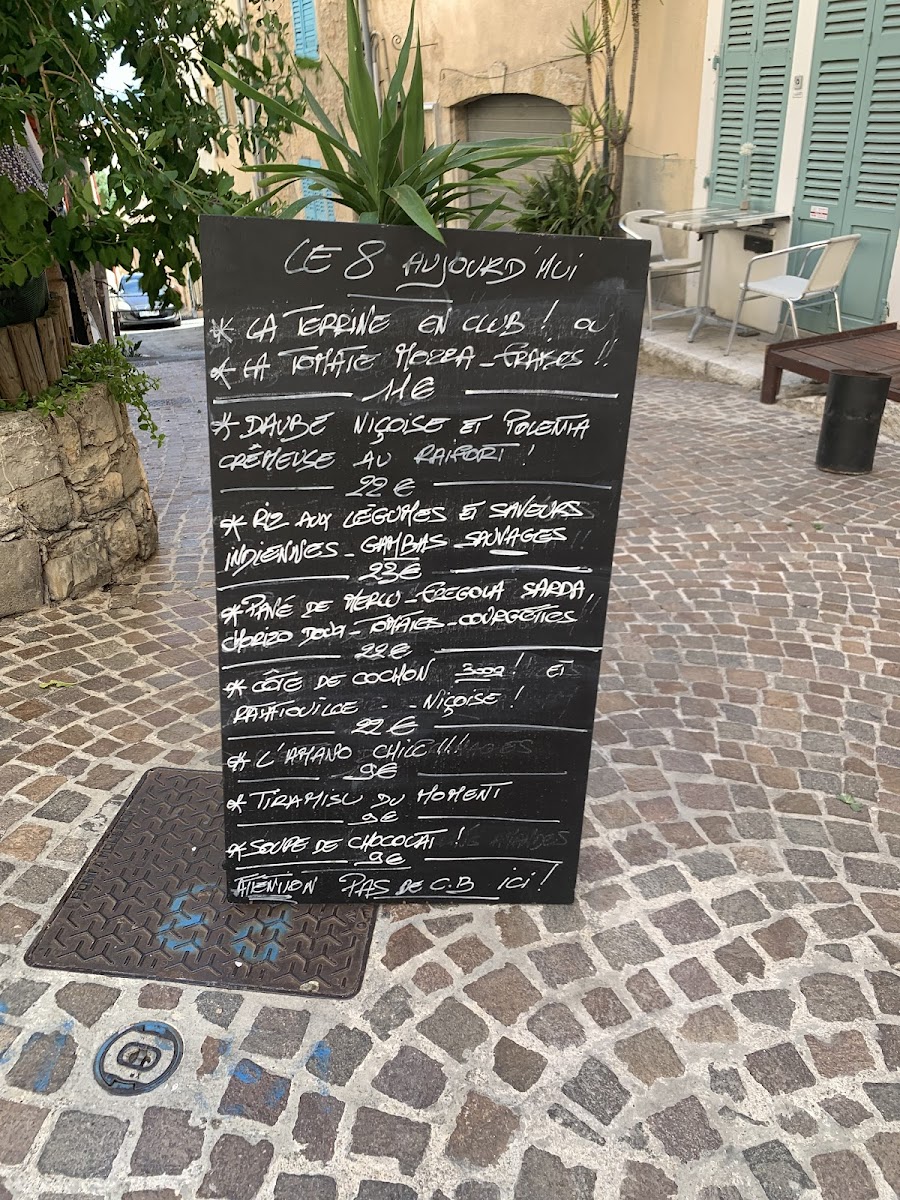 LE 8 AUJOURD'HUI
* LA TERRINE EN CLUB ! OU
* LA TOMATE MOZZA_FRAISES !!
11€
* DAUBE NIÇOISE ET POLENTA
CRÉMEUSE AU RAIFORT !
22€
* RIZ AUX LÉGUMES ET SAVEURS
INDIENNES_GAMBAS SAUVAGES
23€
* PAVÉ DE MERLU_FREGOLA SARDA,
CHORIZO DOUX_TOMATES_COURGETTES
22€
* CÔTE DE COCHON 300g ! ET
RATATOUILLE - - NIÇOISE !
22€
* L'AMANO CHILL !!!
9€
* TIRAMISU DU MOMENT
9€
* SOUPE DE CHOCOLAT !
9€
ATTENTION PAS DE C.B ICI !